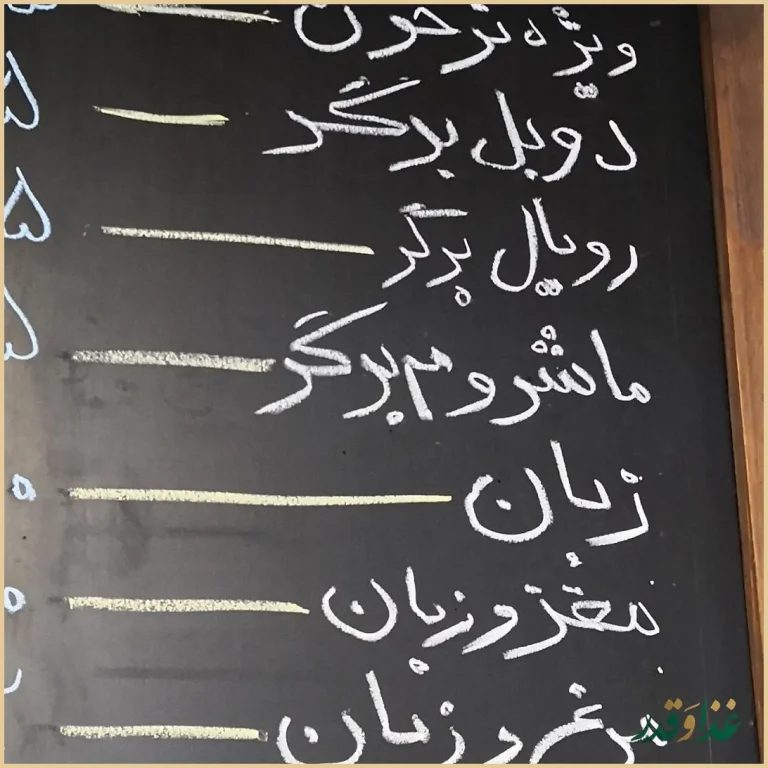 ویژه ترخون
دوبل برگر ۵
رویال برگر ۵
ماشروم برگر ۵
زبان ۰
مغز و زبان ۰
مرغ و زبان
غذا و قدر